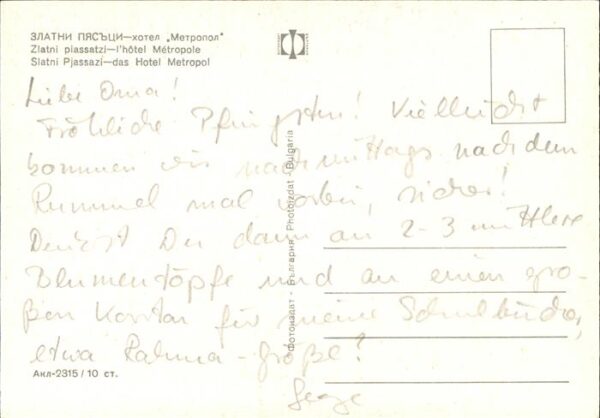 ЗЛАТНИ ПЯСЪЦИ—хотел „Метропол"
Zlatni piassatzi—l'hôtel Métropole
Slatni Pjassazi—das Hotel Metropol
Liebe Oma!
Fröhliche Pfingsten! Vielleicht
kommen wir nachmittags nach dem
Rummel mal vorbei, sicher!
Denkst Du dann an 2-3 mittlere
Blumentöpfe und an einen gro-
ßen Karton für meine Schulbücher,
etwa Rahma-Größe?
Фотоиздат - България Photoizdat - Bulgaria
Акл-2315/10 ст.